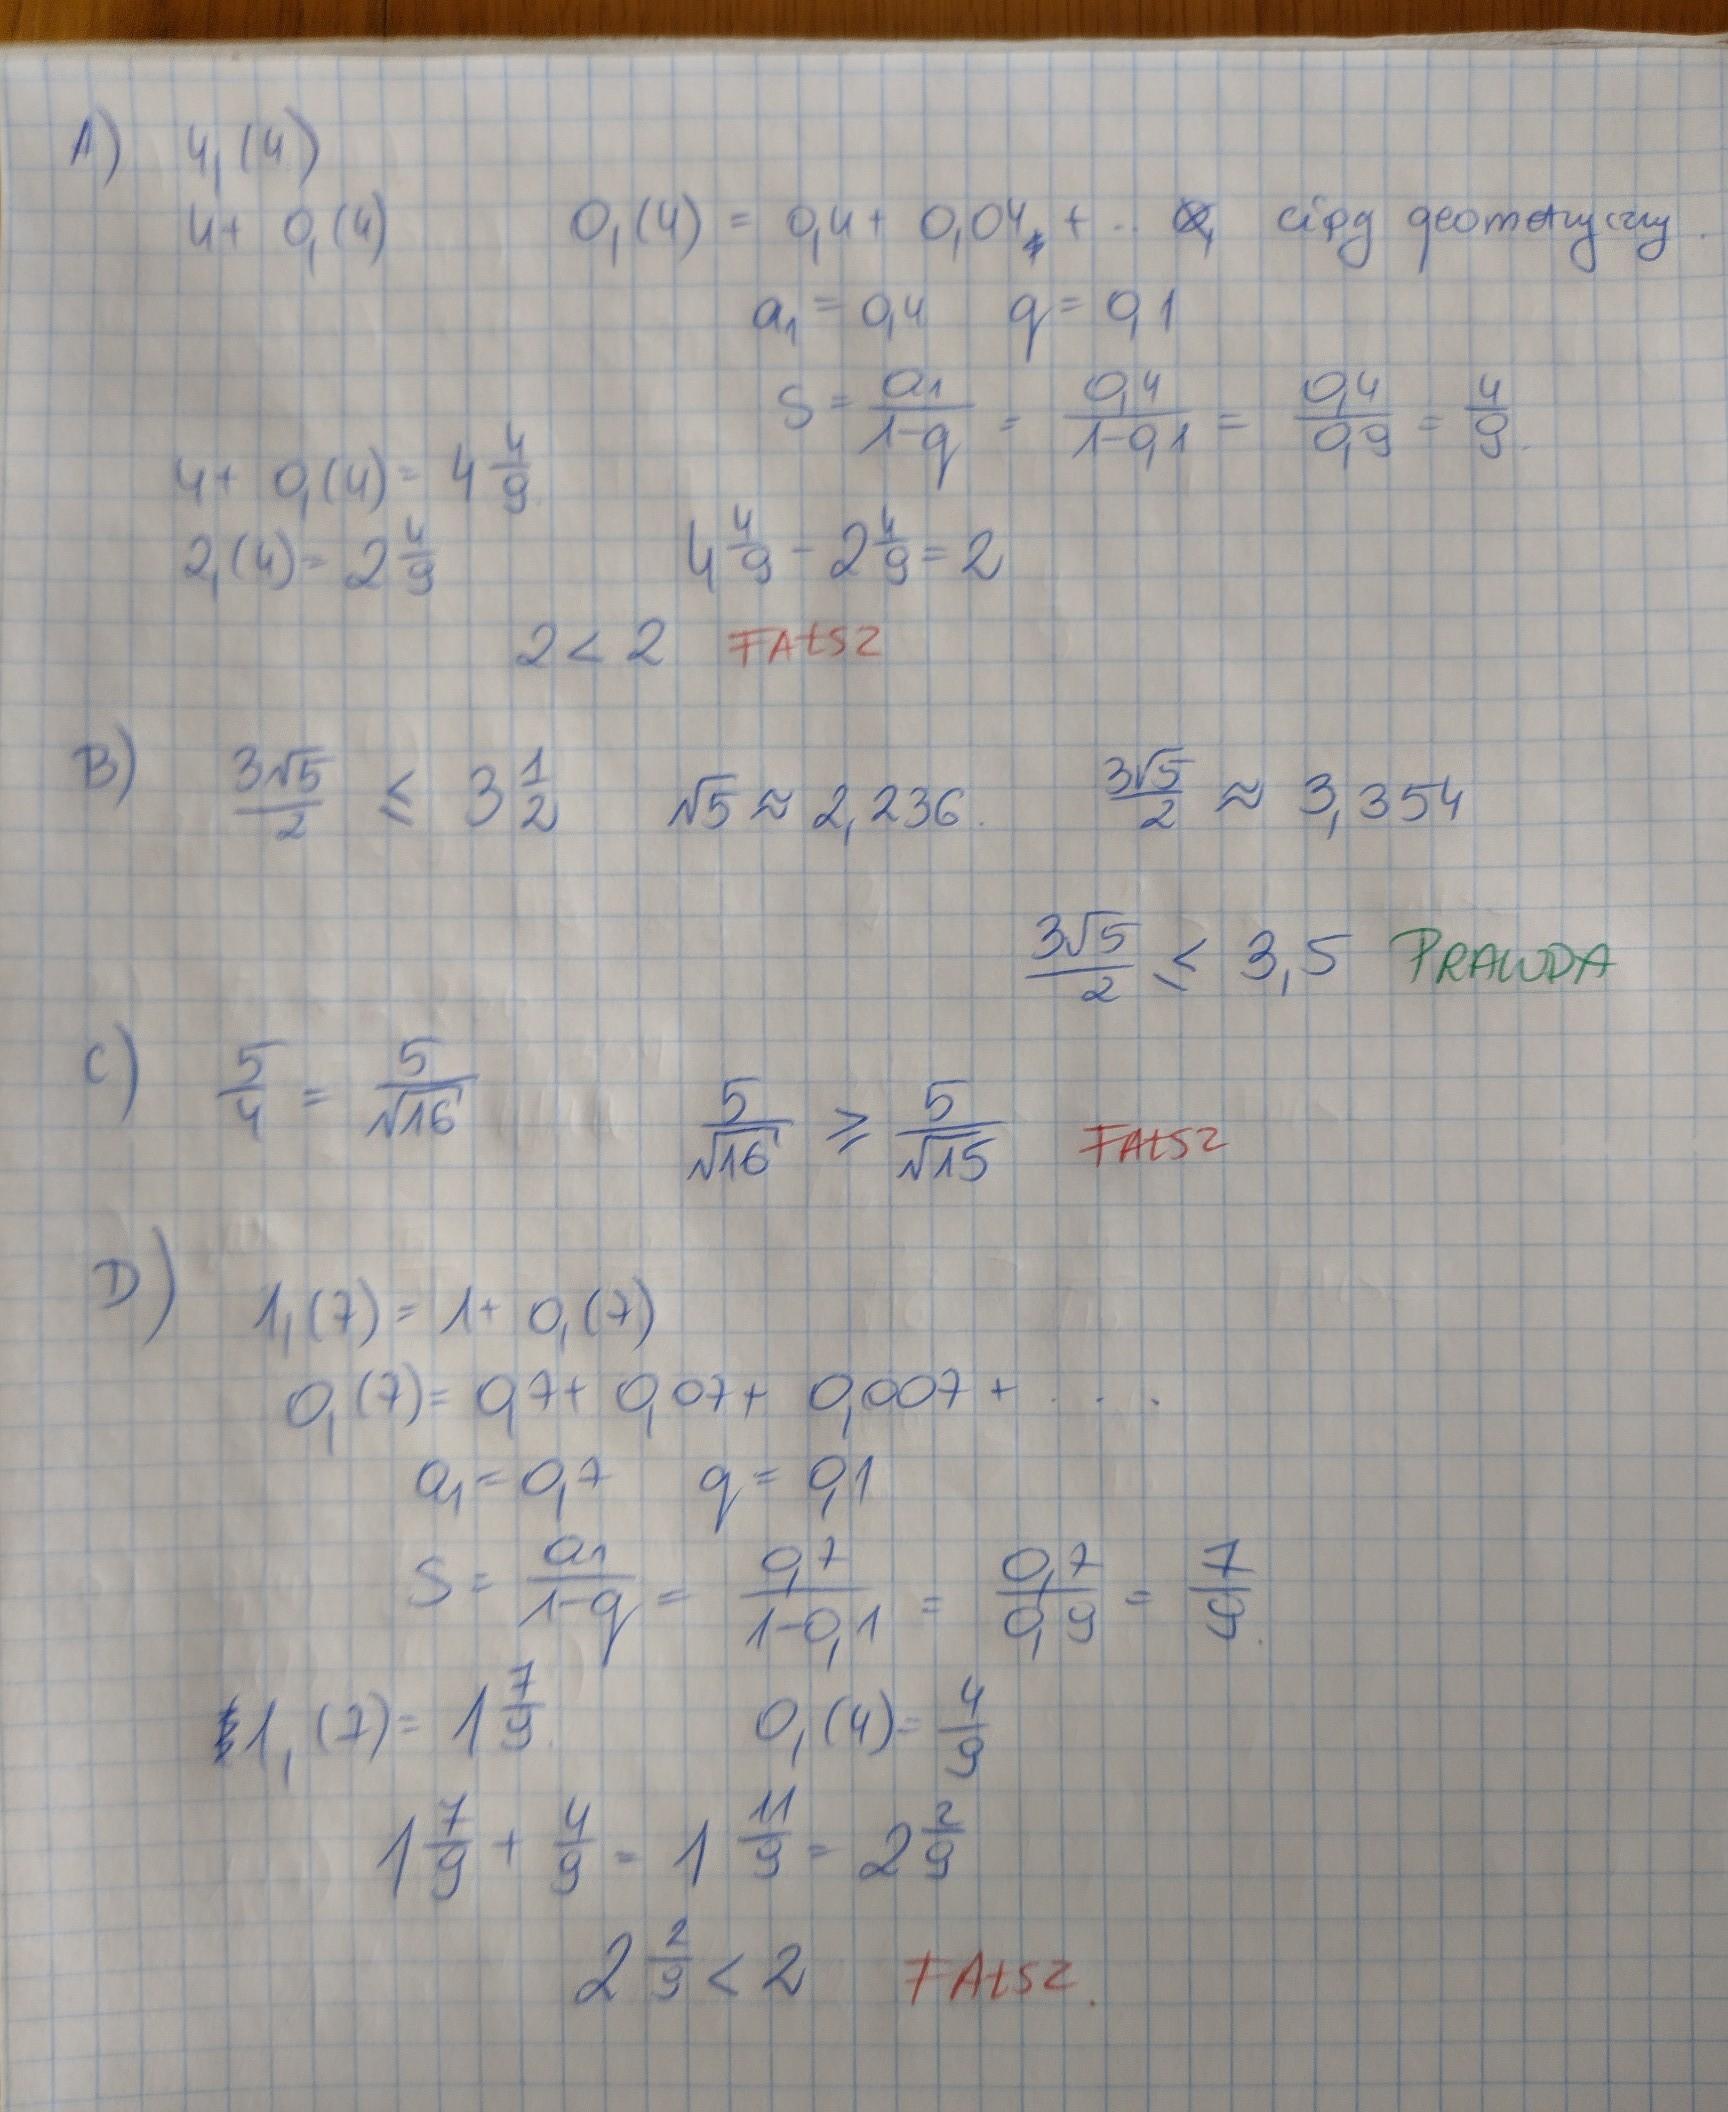 A) 4,(4)
4+ 0,(4) 0,(4) = 0,4+ 0,04 + ... ciąg geometryczny.
a₁ = 0,4 q = 0,1
S = a₁/(1-q) = 0,4/(1-0,1) = 0,4/0,9 = 4/9.
4+ 0,(4) = 4 4/9
2,(4) = 2 4/9 4 4/9 - 2 4/9 = 2
2 < 2 FAŁSZ
B) 3√5/2 ≤ 3 1/2 √5 ≈ 2,236. 3√5/2 ≈ 3,354
3√5/2 ≤ 3,5 PRAWDA
C) 5/4 = 5/√16 5/√16 ≥ 5/√15 FAŁSZ
D) 1,(7) = 1+ 0,(7)
0,(7) = 0,7+ 0,07+ 0,007 + ....
a₁ = 0,7 q = 0,1
S = a₁/(1-q) = 0,7/(1-0,1) = 0,7/0,9 = 7/9.
1,(7) = 1 7/9. 0,(4) = 4/9
1 7/9 + 4/9 = 1 11/9 = 2 2/9
2 2/9 < 2 FAŁSZ.